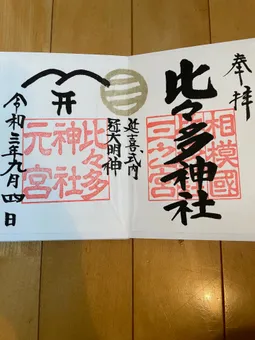 奉拝
比々多神社
相模國
三之宮
延喜式内
冠大明神
比々多
神社
元宮
令和三年九月四日